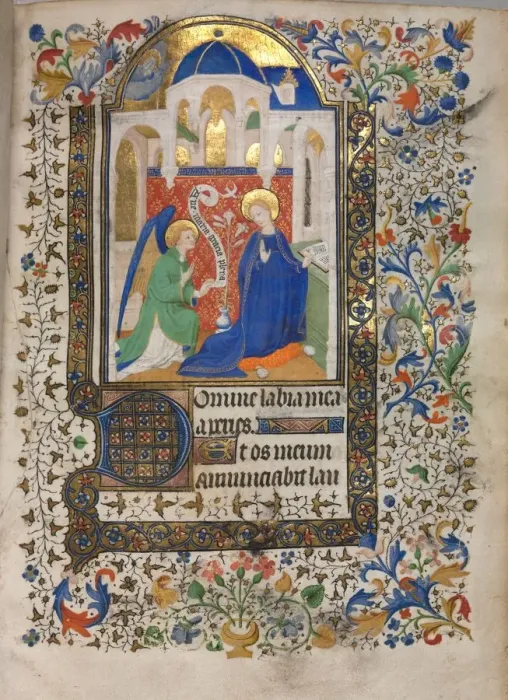 Ave maria gracia plena
Domine labia mea
aperies.
Et os meum
Annunciabit lau